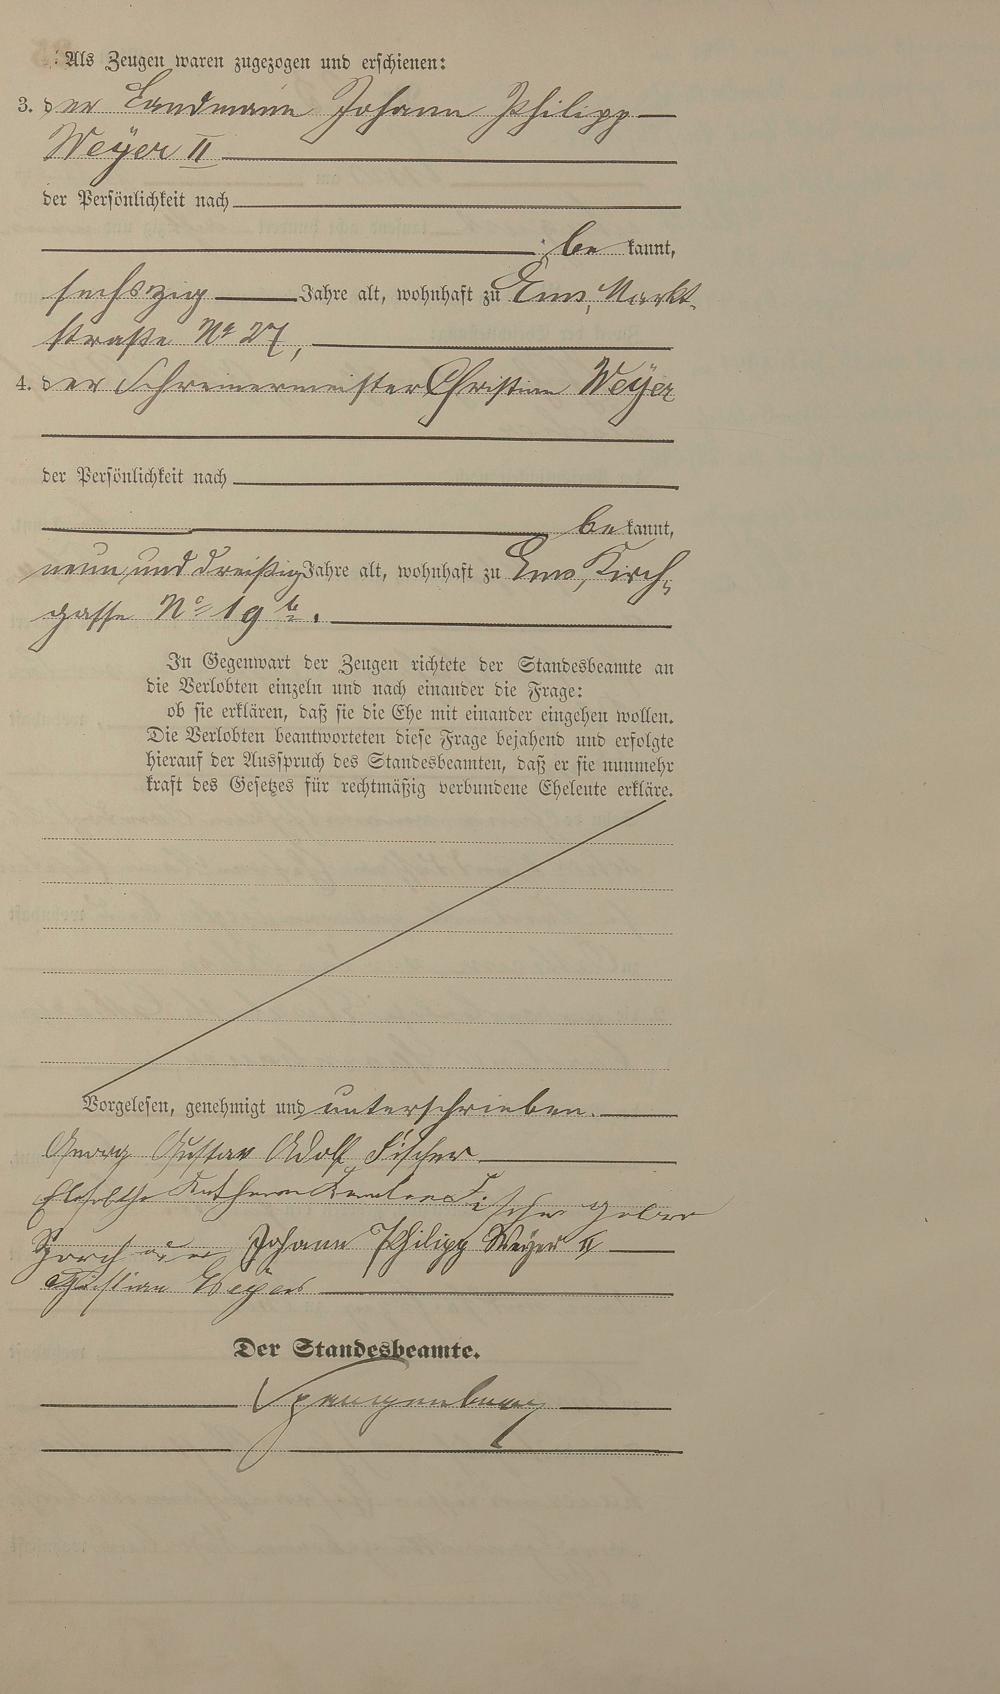 Als Zeugen waren zugezogen und erschienen:
3. der Landmann Johann Philipp
Weyer II
der Persönlichkeit nach
be kannt,
sechszig Jahre alt, wohnhaft zu Ems, Markt-
straße No 27,
4. der Schreinermeister Christian Weyer
der Persönlichkeit nach
be kannt,
neun und dreißig Jahre alt, wohnhaft zu Ems, Kirch-
gasse No 19 b.
In Gegenwart der Zeugen richtete der Standesbeamte an
die Verlobten einzeln und nach einander die Frage:
ob sie erklären, daß sie die Ehe mit einander eingehen wollen.
Die Verlobten beantworteten diese Frage bejahend und erfolgte
hierauf der Ausspruch des Standesbeamten, daß er sie nunmehr
kraft des Gesetzes für rechtmäßig verbundene Eheleute erkläre.
Vorgelesen, genehmigt und unterschrieben.
Georg Gustav Adolf Fischer
Fischer
Johann Philipp Weyer II
Christian Weyer
Der Standesbeamte.
Spangenberg